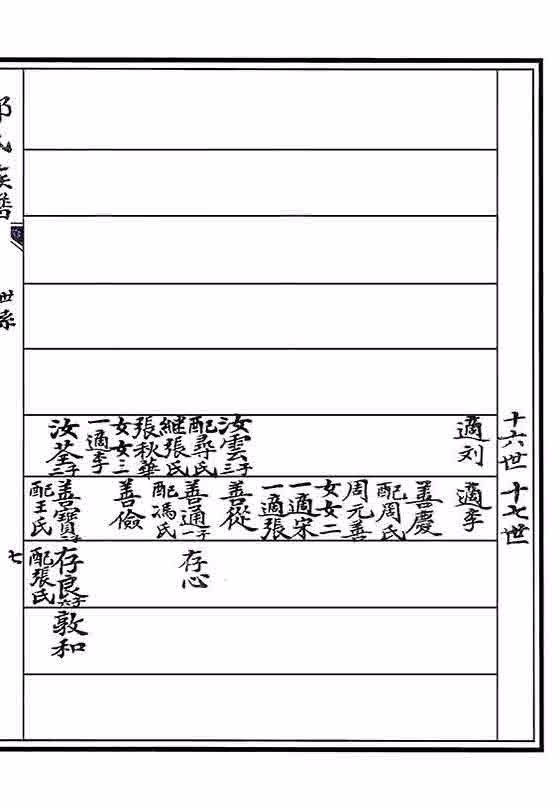 十六世
適刘
汝雲三子
配尋氏
繼張氏
張秋華
女女三
一適李
汝荃三子
十七世
適李
善慶
配周氏
周元善
女女二
一適宋
一適張
善從
善通一子
配馮氏
善儉
善寶
配王氏
存心
存良六子
配張氏
敦和
氏族譜
世系
七